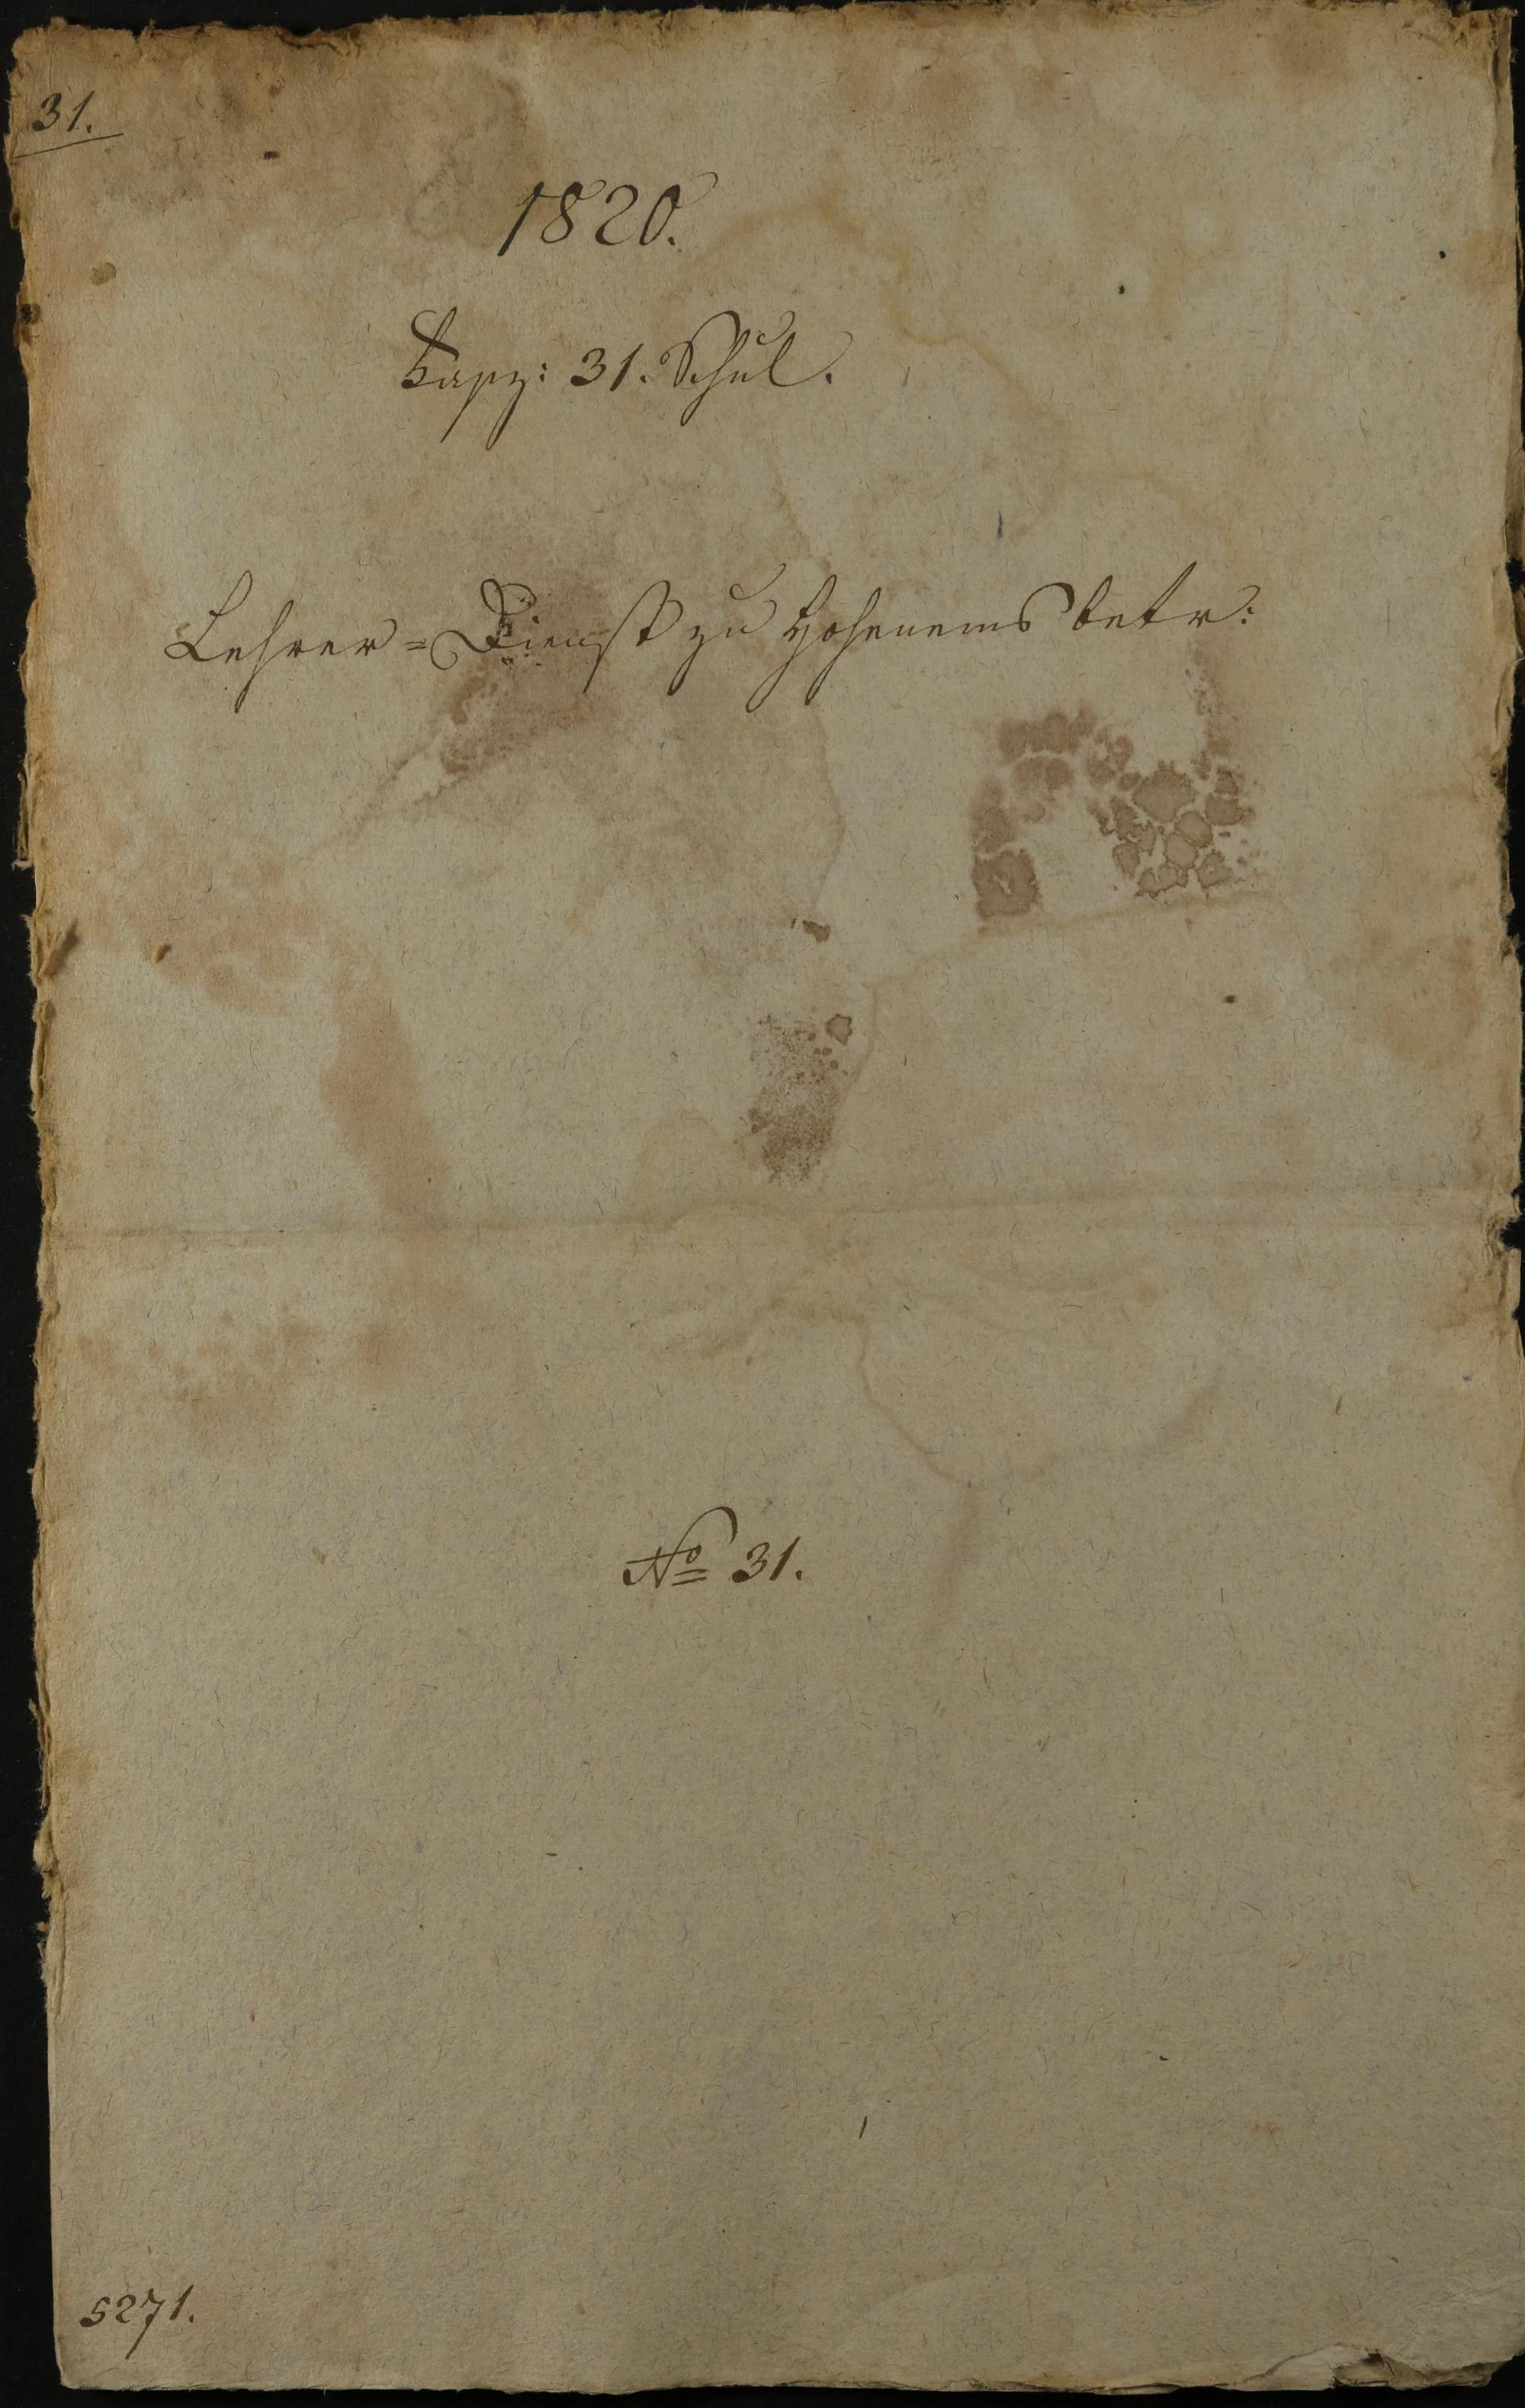 31.
1820.
Fasz: 31. Schul.
Lehrer=Dienst zu Hohenems betr:
No 31.
5271.